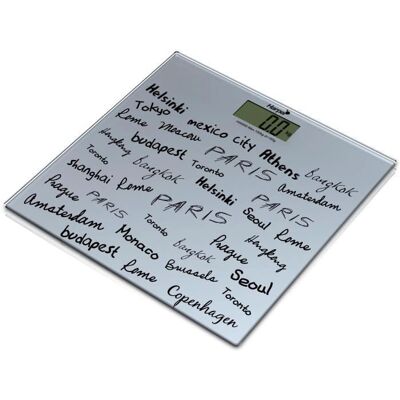 Harper
0.0
kg
Helsinki
Tokyo mexico city Athens
Rome Moscow PARIS Bangkok
Hongkong budapest Toronto Amsterdam
shanghai Bangkok Helsinki PARIS
Toronto Rome Seoul Rome
Prague PARIS PARIS Hongkong
Amsterdam Toronto Prague
budapest Monaco Bangkok Seoul
Rome Brussels Toronto
Copenhagen